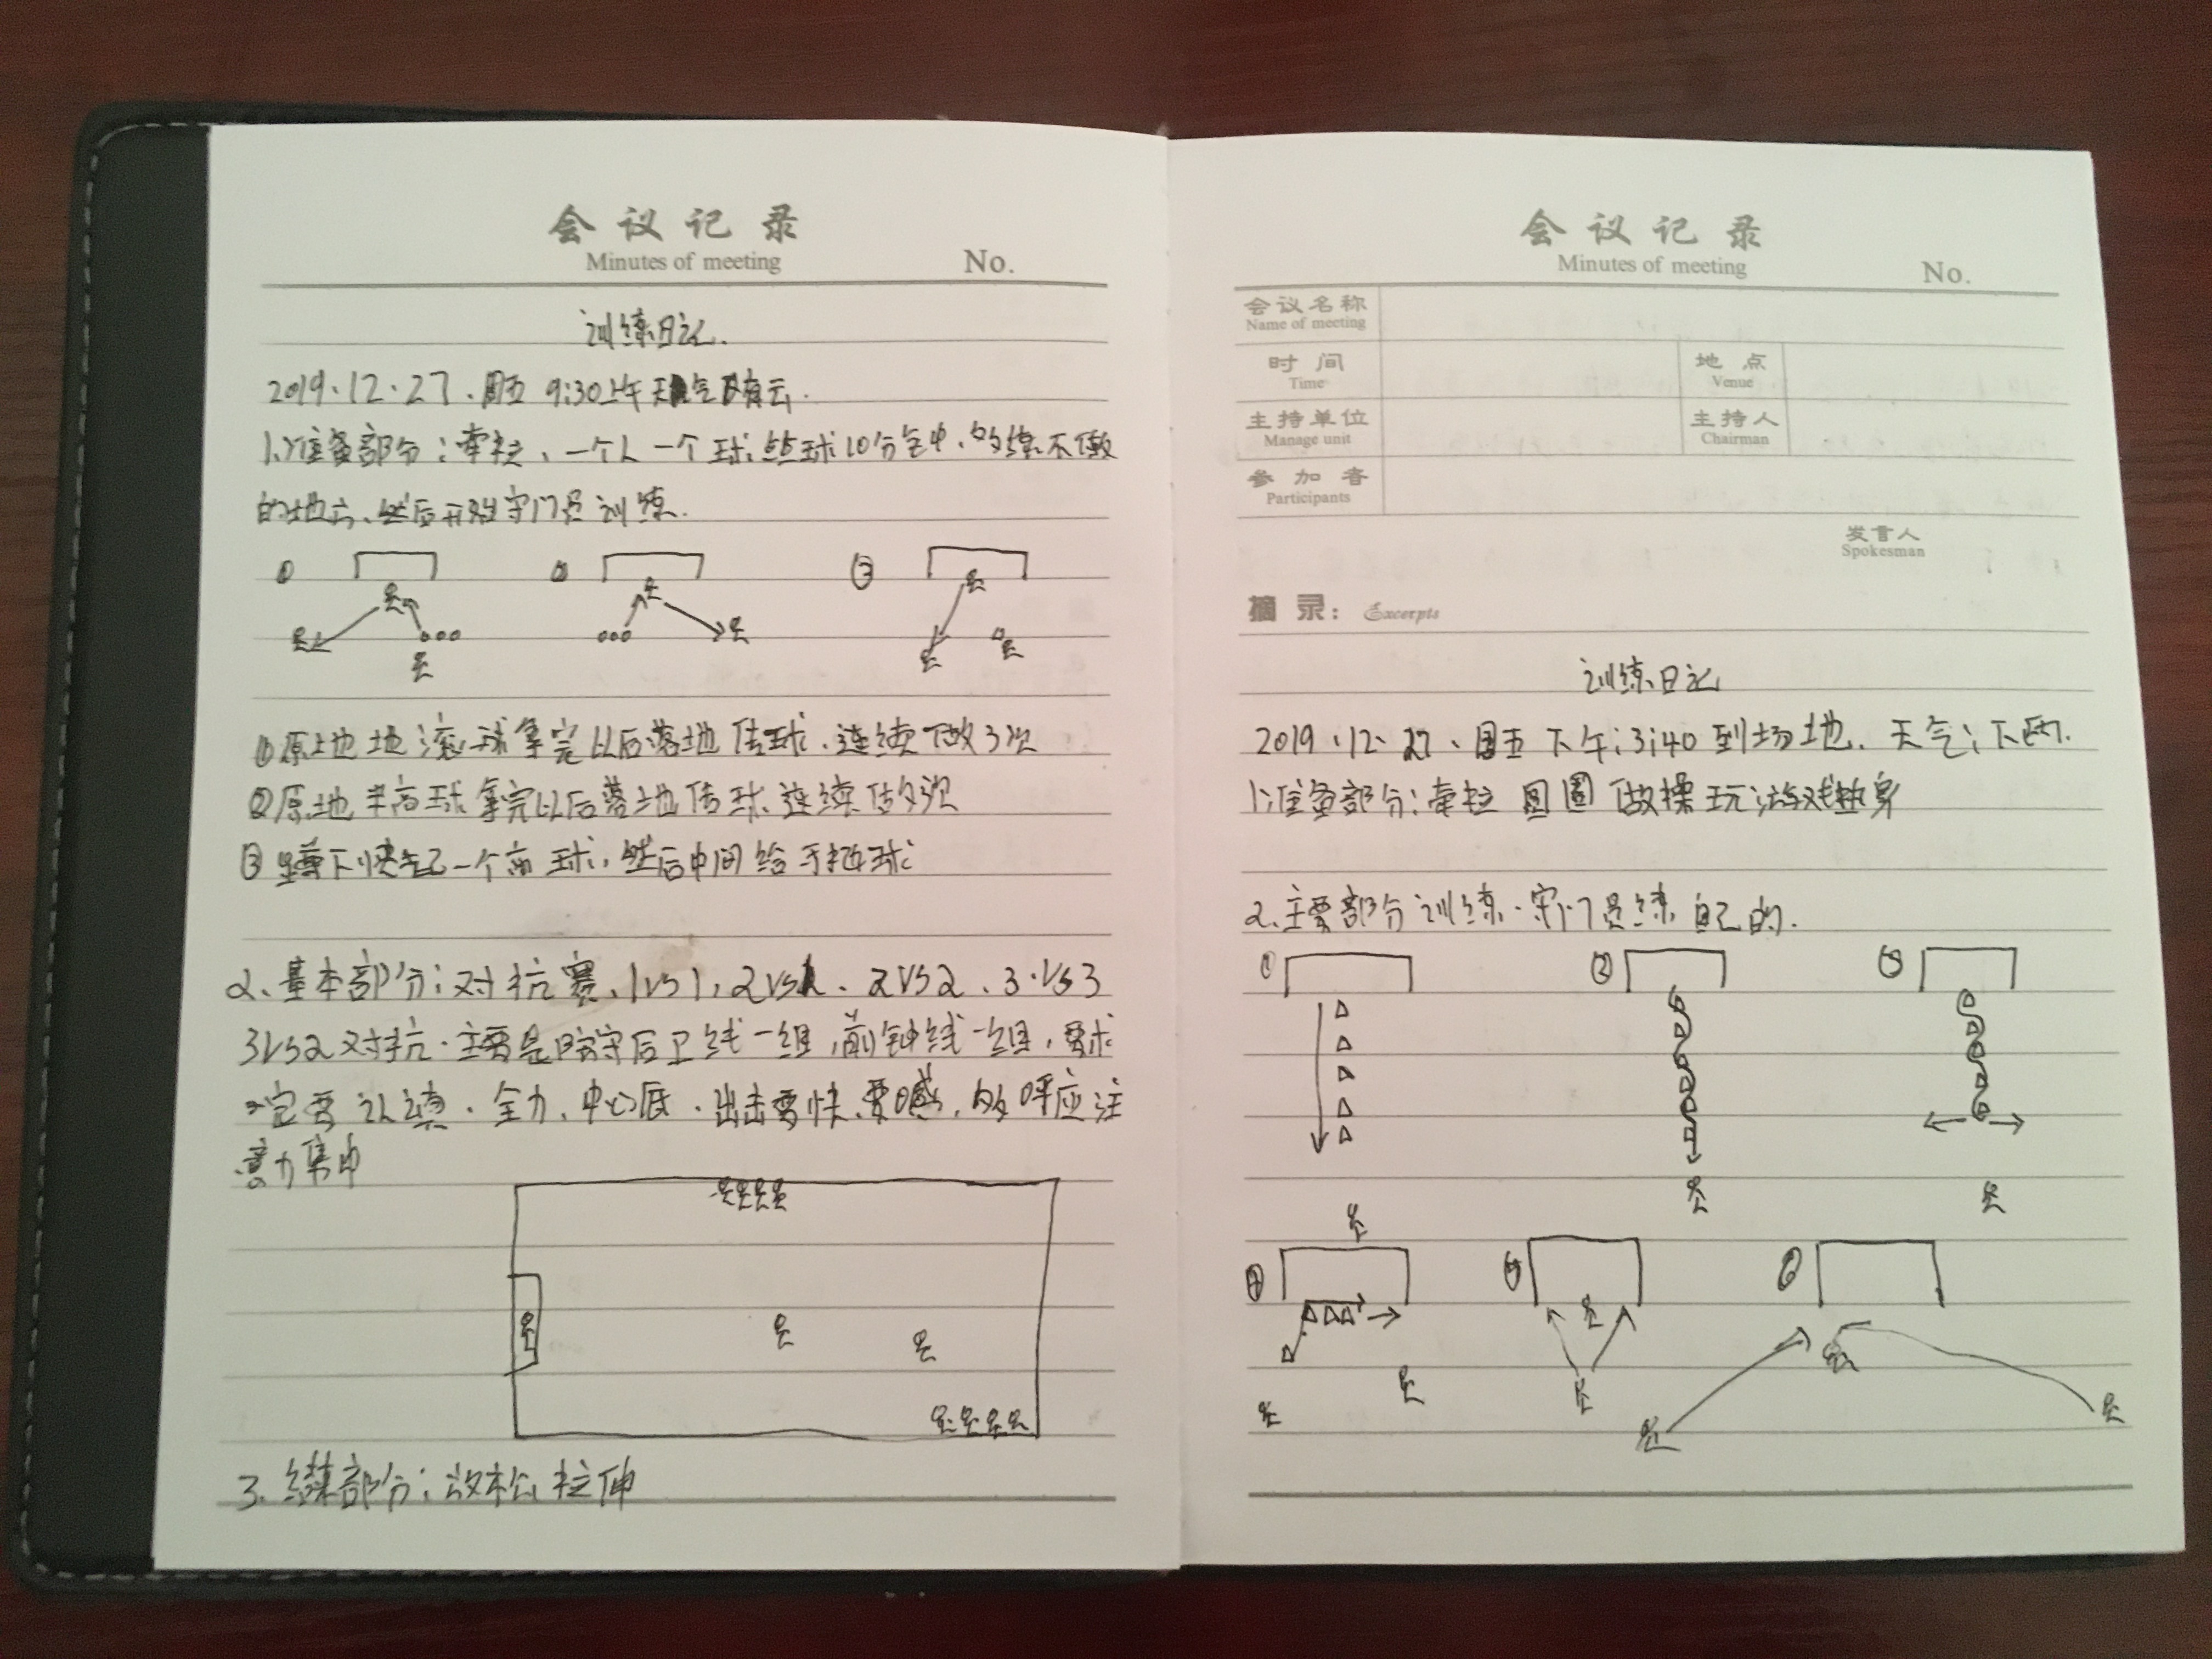 会议记录
Minutes of meeting
No.
训练日记.
2019.12.27.周五 9:30上午天气有云.
1.准备部分:牵拉、一个人一个球 垫球10分钟、多练不做
的地方、然后开始守门员训练.
① ② ③
①原地地滚球拿完以后落地传球、连续做3次
②原地半高球拿完以后落地传球 连续做多次
③ 蹲下快起一个高球,然后中间给手抛球
2、基本部分:对抗赛、1vs1,2vs1、2vs2、3vs3
3vs2对抗.主要是防守后卫线一组,前钟线一组,要求
一定要认真.全力、中心低.出击要快、要喊,多呼应注
意力集中
3.结束部分:放松拉伸
会议记录
Minutes of meeting
No.
会议名称
Name of meeting
时间
Time
地点
Venue
主持单位
Manage unit
主持人
Chairman
参加者
Participants
发言人
Spokesman
摘录: Excerpts
训练日记
2019.12.27、周五 下午:3:40到场地.天气:下雨.
1.准备部分:牵拉 圆圈 做操 玩游戏热身
2.主要部分训练.守门员练自己的.
① ② ③
④ ⑤ ⑥